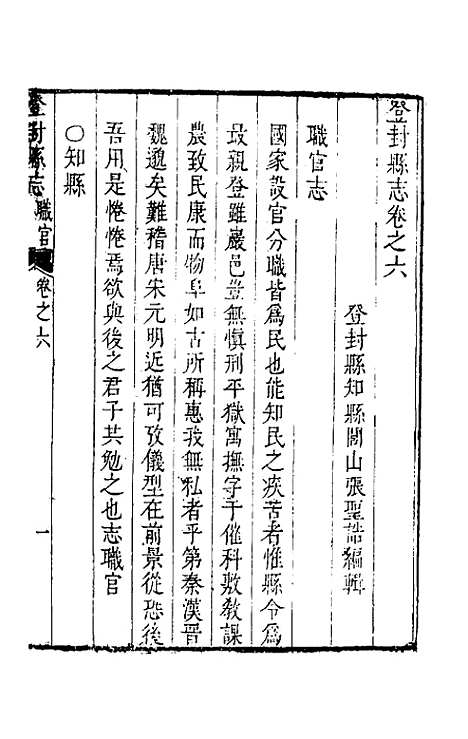 登封縣志卷之六
登封縣知縣閭山張聖誥編輯
職官志
國家設官分職皆爲民也能知民之疾苦者惟縣令爲
最親登雖巖邑豈無慎刑平獄寓撫字于催科敷敎課
農致民康而物阜如古所稱惠我無私者乎第秦漢晉
魏邈矣難稽唐宋元明近猶可攷儀型在前景從恐後
吾用是惓惓焉欲與後之君子共勉之也志職官
○知縣
登封縣志 職官 卷之六 一